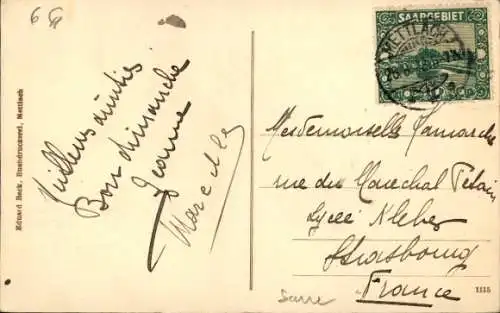 6
SAARGEBIET
METTLACH
Meilleures amitiés
Bon dimanche
Jeanne
Marcelle
Eduard Beck, Buchdruckerei, Mettlach
Mesdemoiselles Camarche
rue du Maréchal Pétain
Lycée Kleber
Strasbourg
France
1115
Sarre